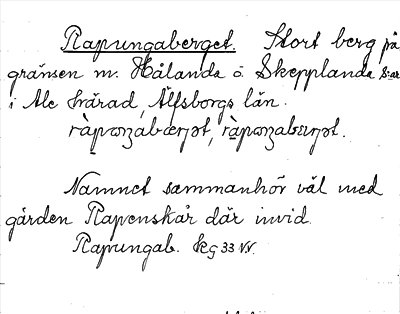 Rapungaberget. Stort berg på
gränsen m. Hålanda o. Skepplanda s:ar
i Ale härad, Älfsborgs län.
Namnet sammanhör väl med
gården Rapenskår där invid.
Rapungab. kg 33 NV.